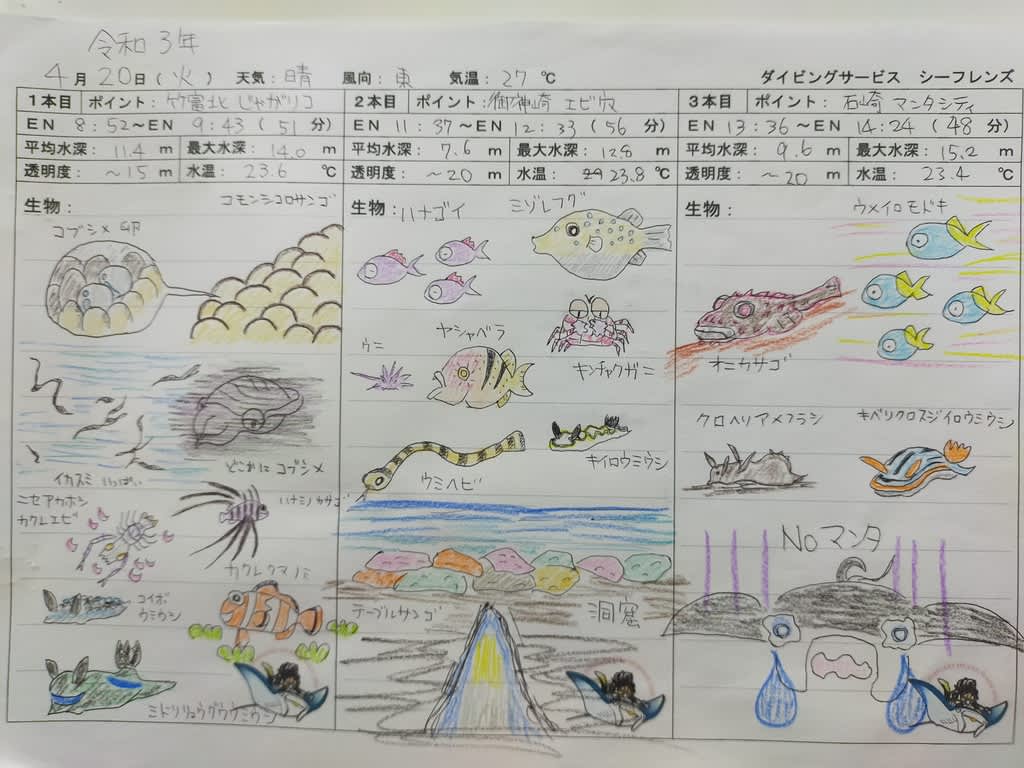 令和3年
4月20日(火) 天気:晴 風向:東 気温:27℃ ダイビングサービス シーフレンズ
1本目 ポイント:竹富北 じゃがリコ
EN 8:52~EN 9:43(51分)
平均水深:11.4m 最大水深:14.0m
透明度:~15m 水温:23.6℃
生物:
コモンシコロサンゴ
コブシメ 卵
イカスミ いっぱい
どこかに コブシメ
ニセアカホシ
カクレエビ
ハナミノカサゴ
カクレクマノミ
コイボ
ウミウシ
ミドリリュウグウウミウシ
2本目 ポイント:御神崎 エビ穴
EN 11:37~EN 12:33(56分)
平均水深:7.6m 最大水深:12.8m
透明度:~20m 水温:23.8℃
生物:
ハナゴイ
ミゾレフグ
ヤシャベラ
ウニ
キンチャクガニ
ウミヘビ
キイロウミウシ
テーブルサンゴ
洞窟
3本目 ポイント:石崎 マンタシティ
EN 13:36~EN 14:24(48分)
平均水深:9.6m 最大水深:15.2m
透明度:~20m 水温:23.4℃
生物:
ウメイロモドキ
オニカサゴ
クロヘリアメフラシ
キベリクロスジイロウミウシ
Noマンタ